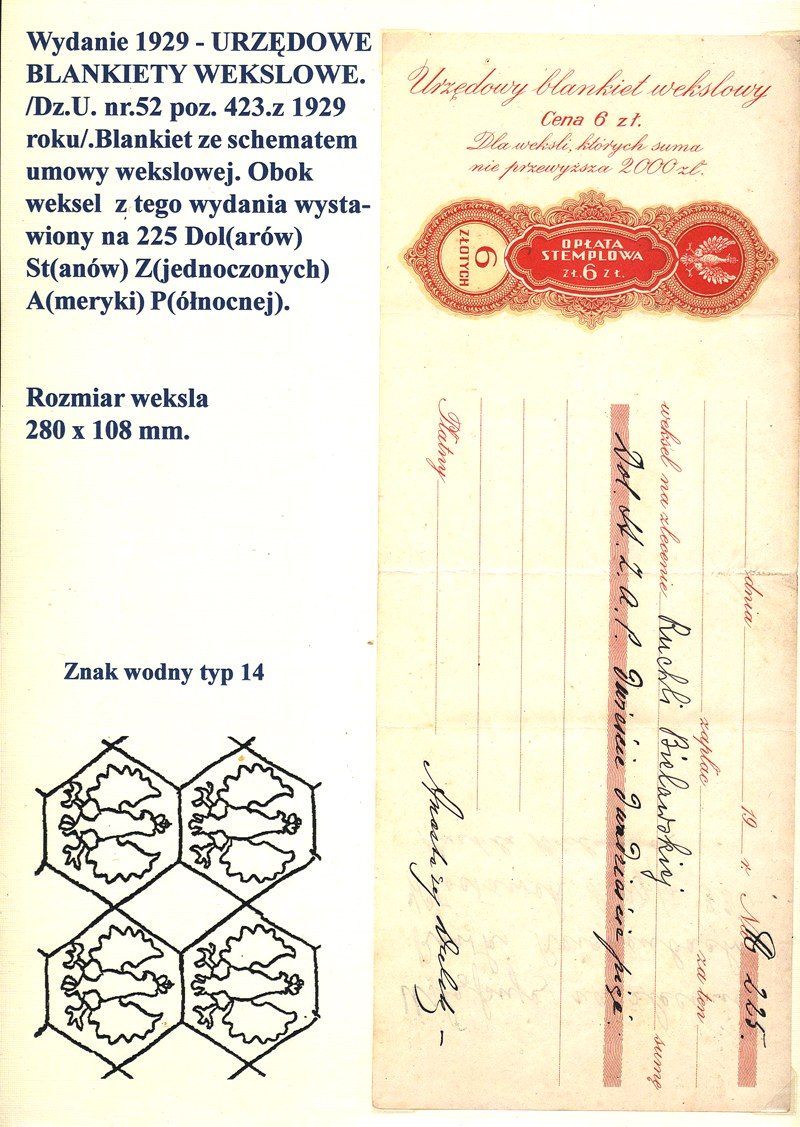 Wydanie 1929 - URZĘDOWE
BLANKIETY WEKSLOWE.
/Dz.U. nr.52 poz. 423.z 1929
roku/.Blankiet ze schematem
umowy wekslowej. Obok
weksel z tego wydania wysta-
wiony na 225 Dol(arów)
St(anów) Z(jednoczonych)
A(meryki) P(ółnocnej).
Rozmiar weksla
280 x 108 mm.
Znak wodny typ 14
Urzędowy blankiet wekslowy
Cena 6 zł.
Dla weksli, których suma
nie przewyższa 2000 zł.
6 ZŁOTYCH
OPŁATA
STEMPLOWA
Zł. 6 Zł.
dnia 19 r. Na 225.
zapłac za ten
weksel na zlecenie Ruchli Bielawskiej sumę
Dol. St. Z. A. P. Dwieście Dwadzieścia pięć
Płatny